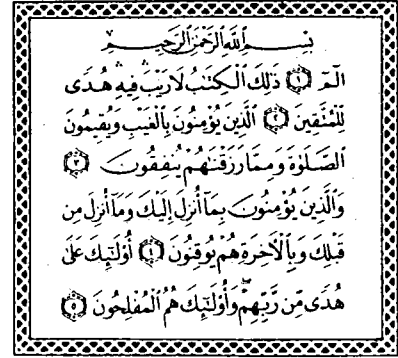 بِسْمِ اللَّهِ الرَّحْمَٰنِ الرَّحِيمِ
الٓمٓ ۝١ ذَٰلِكَ الْكِتَٰبُ لَا رَيْبَ ۛ فِيهِ ۛ هُدًى
لِّلْمُتَّقِينَ ۝٢ الَّذِينَ يُؤْمِنُونَ بِالْغَيْبِ وَيُقِيمُونَ
الصَّلَوٰةَ وَمِمَّا رَزَقْنَٰهُمْ يُنفِقُونَ ۝٣
وَالَّذِينَ يُؤْمِنُونَ بِمَآ أُنزِلَ إِلَيْكَ وَمَآ أُنزِلَ مِن
قَبْلِكَ وَبِالْأَخِرَةِ هُمْ يُوقِنُونَ ۝٤ أُوْلَٰٓئِكَ عَلَىٰ
هُدًى مِّن رَّبِّهِمْ ۖ وَأُوْلَٰٓئِكَ هُمُ الْمُفْلِحُونَ ۝٥